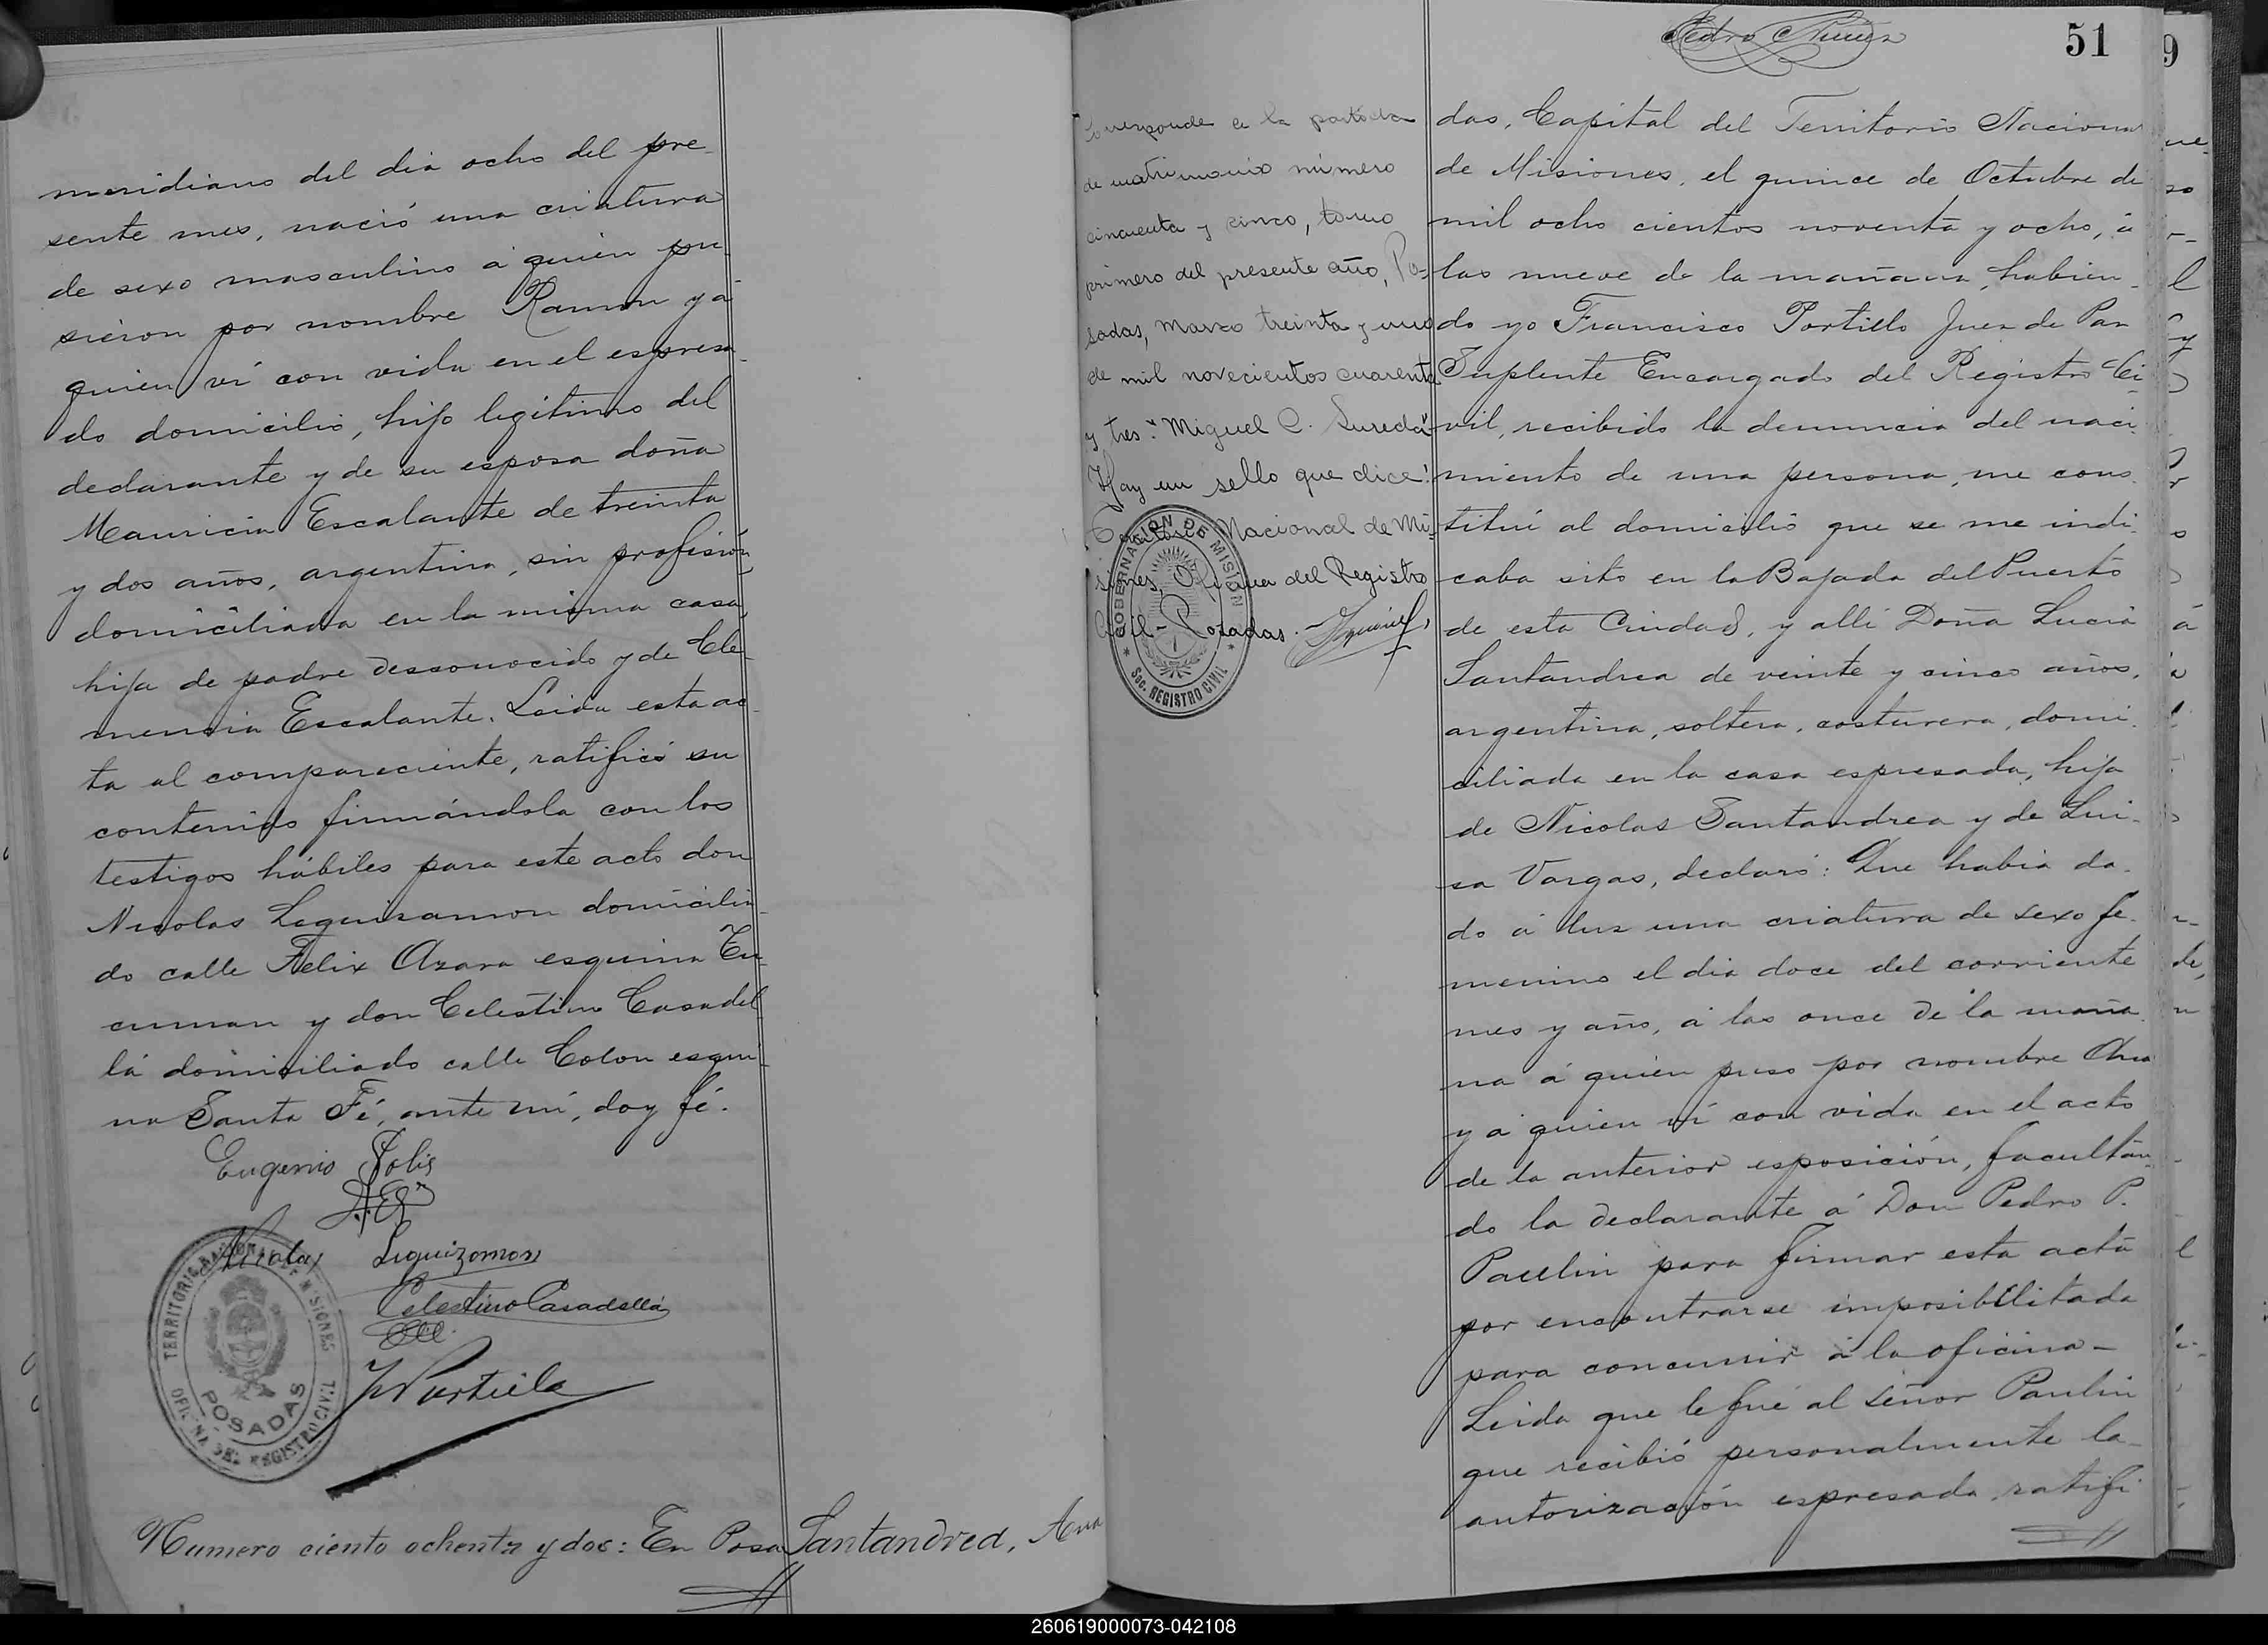 meridiano del dia ocho del pre-
sente mes, nació una criatura
de sexo masculino á quien pu-
sieron por nombre Ramon y á
quien ví con vida en el espresa-
do domicilio, hijo legítimo del
declarante y de su esposa doña
Mauricia Escalante de treinta
y dos años, argentina, sin profesión
domiciliada en la misma casa,
hija de padre desconocido y de Cle-
mencia Escalante. Leida esta ac-
ta al compareciente, ratificó su
contenido firmándola con los
testigos hábiles para este acto don
Nicolas Leguisamon domicilia-
do calle Felix Azara esquina Tu-
cuman y don Celestino Casadel-
lá domiciliado calle Colon esqui-
na Santa Fé, ante mí, doy fé.
Eugenio Solis
Nicolas Leguizamon
Celestino Casadellá
F Portillo
TERRITORIO NACIONAL DE MISIONES
POSADAS
OFICINA DEL REGISTRO CIVIL
Numero ciento ochenta y dos: En Posa
Santandrea, Ana
Pedro Nuñez
51
9
Corresponde a la partida
de matrimonio número
cincuenta y cinco, tomo
primero del presente año, Po-
sadas, Marzo treinta y uno
de mil novecientos cuarenta
y tres. "Miguel C. Sureda"
Hay un sello que dice:
Nacional de Mi-
siones, Oficina del Registro
Civil - Posadas.
GOBERNACION DE MISION
Sec. REGISTRO CIVIL
das, Capital del Territorio Nacional
de Misiones, el quince de Octubre de
mil ocho cientos noventa y ocho, á
las nueve de la mañana, habien-
do yo Francisco Portillo Juez de Paz
Suplente Encargado del Registro Ci-
vil, recibido la denuncia del naci-
miento de una persona, me cons-
tituí al domicilio que se me indi-
caba sito en la Bajada del Puerto
de esta Ciudad, y allí Doña Lucia
Santandrea de veinte y cinco años,
argentina, soltera, costurera, domi-
ciliada en la casa espresada, hija
de Nicolas Santandrea y de Lui-
sa Vargas, declaró: Que habia da-
do á luz una criatura de sexo fe-
menino el dia doce del corriente
mes y año, á las once de la maña-
na á quien puso por nombre Ana
y á quien ví con vida en el acto
de la anterior esposición, facultán-
do la declarante á Don Pedro P.
Paulin para firmar esta acta
por encontrarse imposibilitada
para concurrir á la oficina-
Leida que le fué al señor Paulin
que recibió personalmente la
autorización espresada ratifi
260619000073-042108